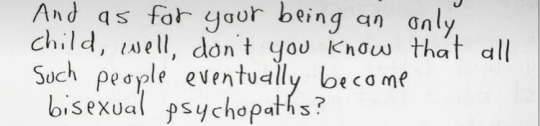 And as for your being an only
child, well, don't you know that all
such people eventually become
bisexual psychopaths?